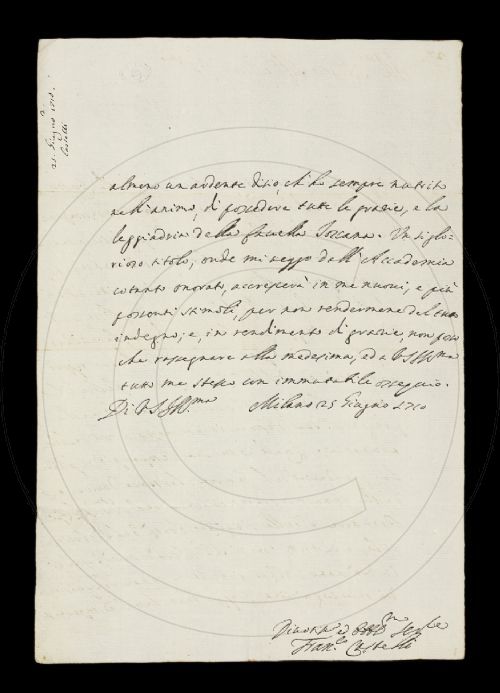 21. Giugno 1710.
Castelli
almeno un ardente disio, ch'ho sempre nutrito
nell'animo, di possedere tutte le grazie, e la
leggiadria della favella Toscana. Un sì glo-
rioso titolo, onde mi veggo dall'Accademia
cotanto onorato, accrescerà in me nuovi, e più
possenti stimoli, per non rendermene del tutto
indegno; e, in rendimento di grazie, non posso
che rassegnare alla medesima, ed a VS Illma
tutto me stesso con immutabile ossequio.
Di VS Illma. Milano 25 Giugno 1710
Divotmo ed Obbmo
Franco Castelli